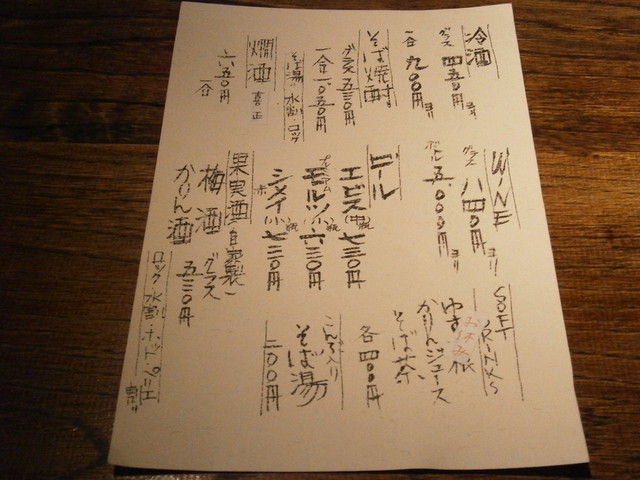 冷酒
グラス 四五〇円ヨリ
一合 九〇〇円ヨリ
そば焼酎
グラス五三〇円
一合一〇五〇円
そば湯・水割・ロック
燗酒
喜正
六五〇円
一合
WINE
グラス 八四〇円ヨリ
ボトル 五、〇〇〇円ヨリ
ビール
エビス(中瓶)七三〇円
プレミアム
モルツ(小瓶)六三〇円
シメイ(小瓶)七三〇円
赤
果実酒 自家製
梅酒 グラス
かりん酒 五三〇円
ロック・水割・
SOFT
DRINKS
ゆず
お休み
かりんジュース
そば茶
各四〇〇円
そば湯
二〇〇円